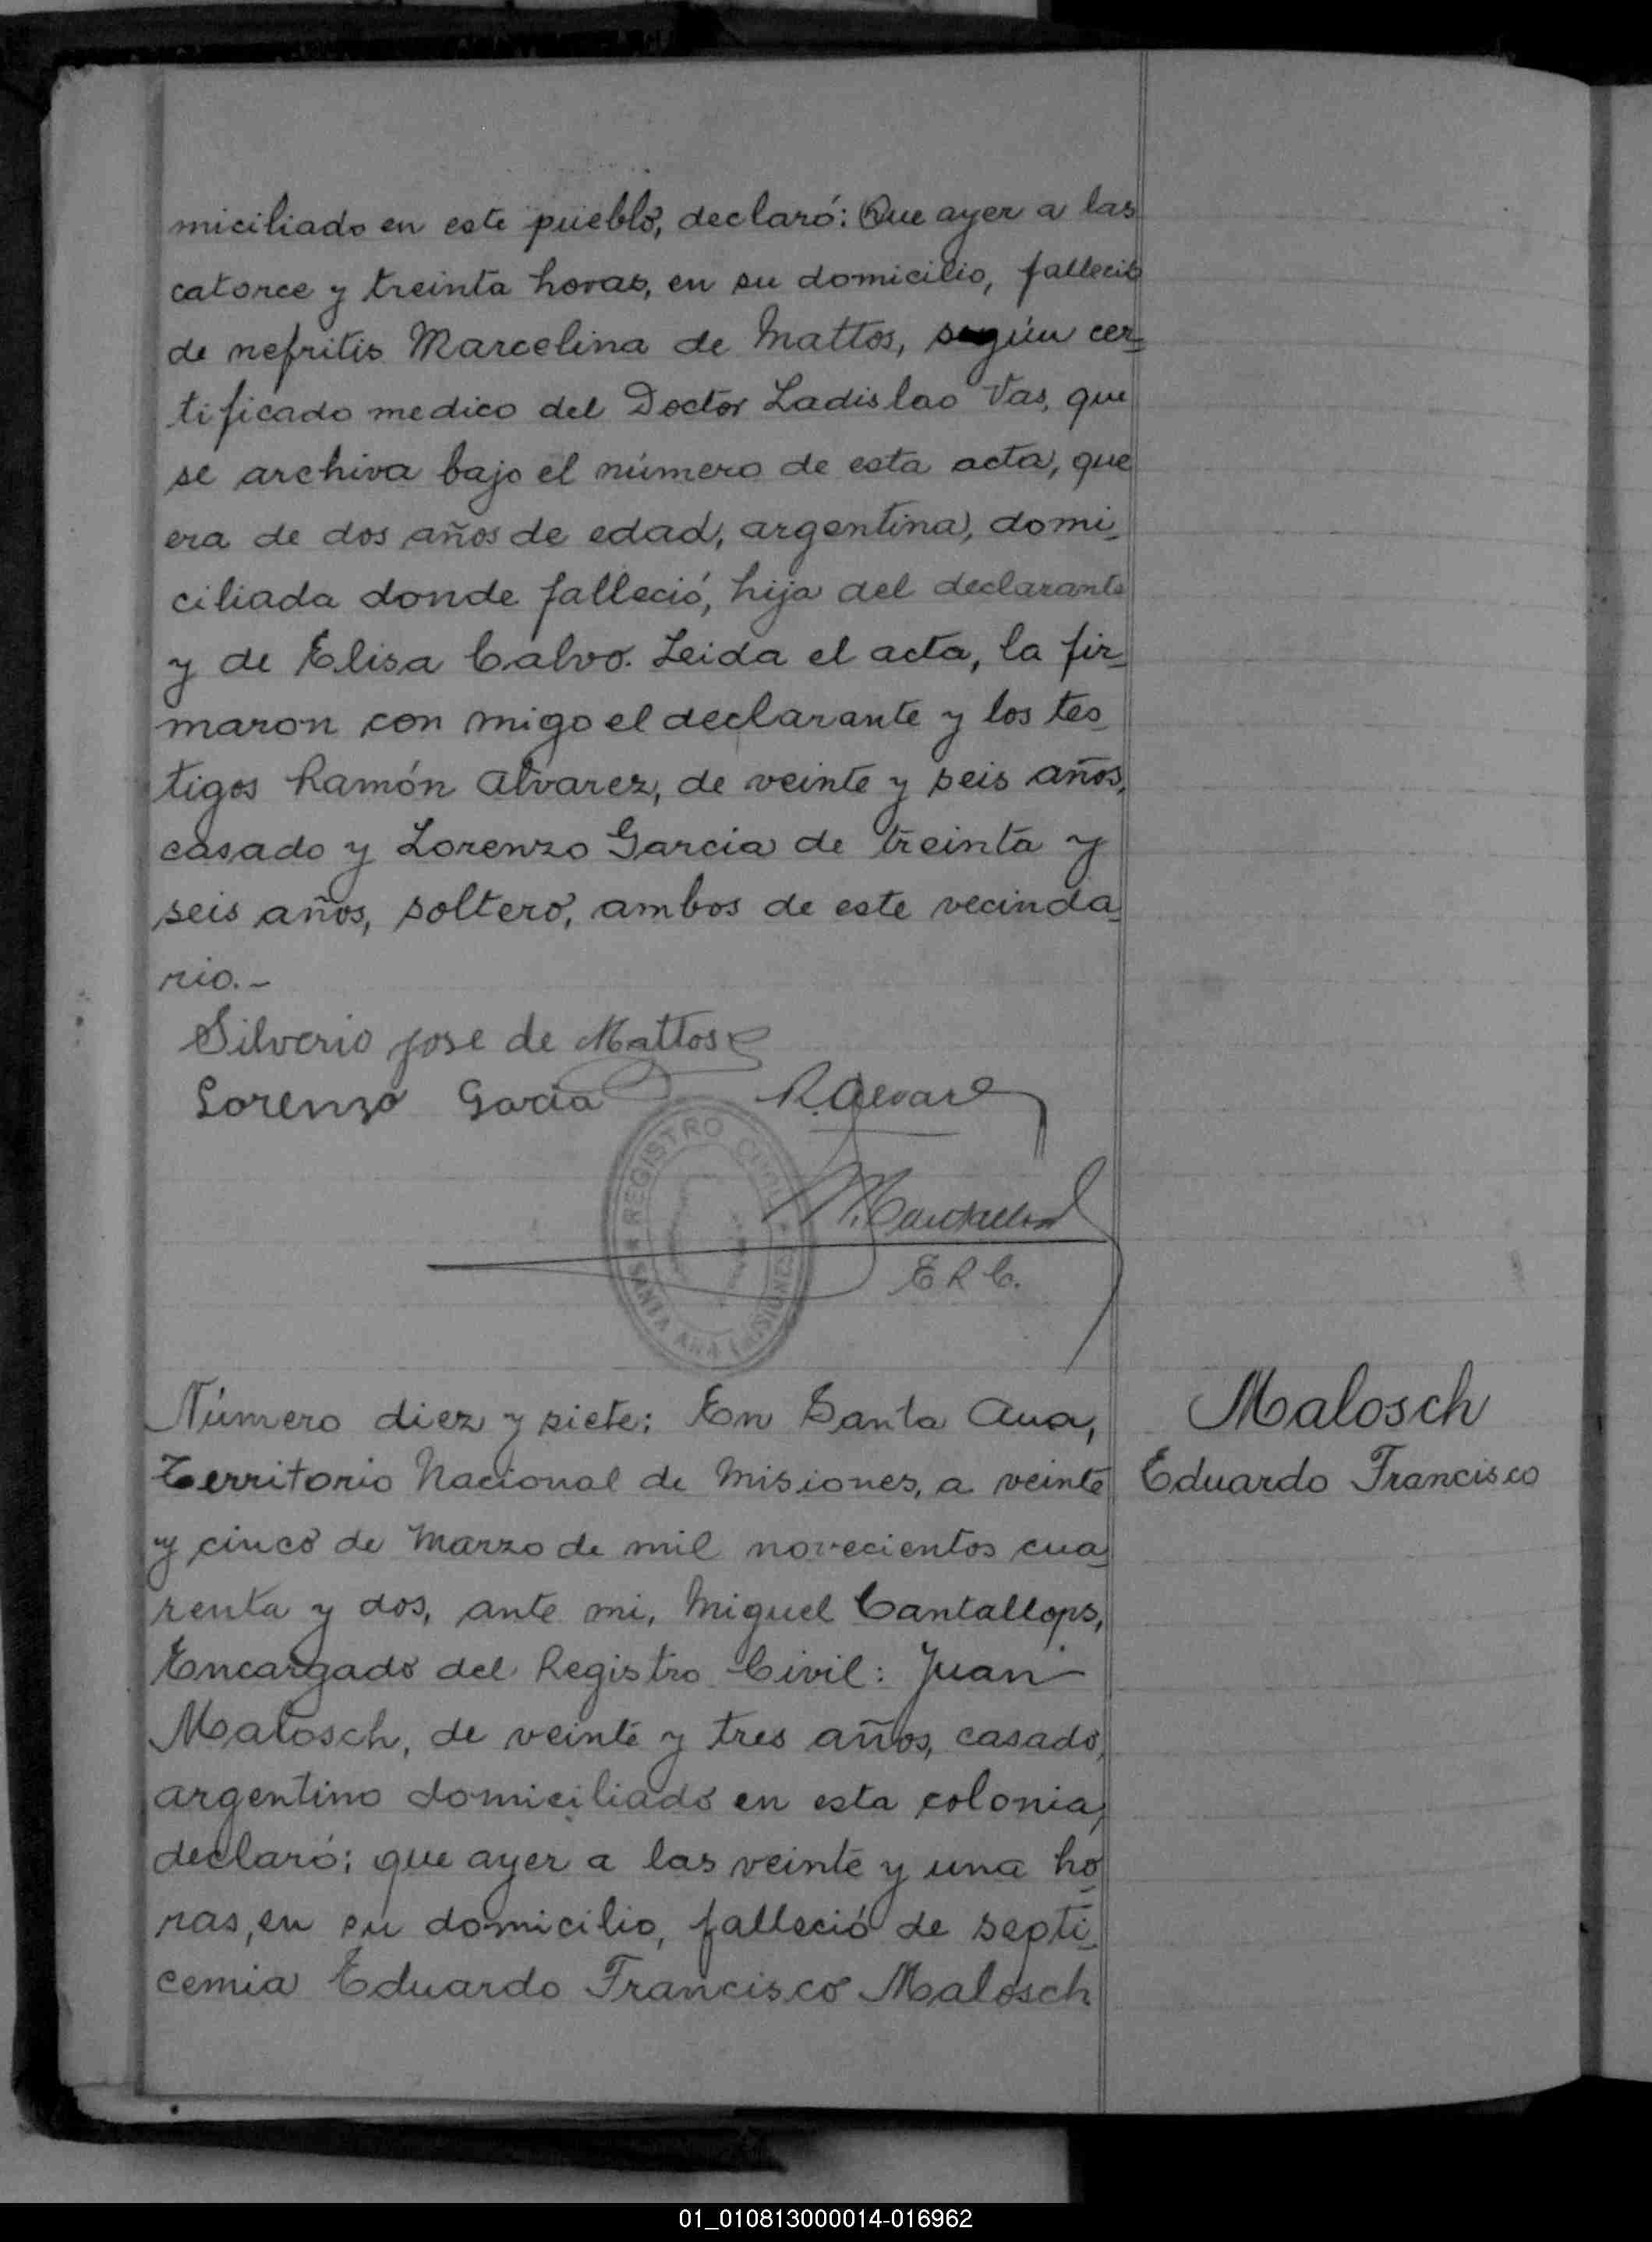 miciliado en este pueblo, declaró: Que ayer a las
catorce y treinta horas, en su domicilio, falleció
de nefritis Marcelina de Mattos, según cer-
tificado medico del Doctor Ladislao Vas, que
se archiva bajo el número de esta acta, que
era de dos años de edad, argentina, domi-
ciliada donde falleció, hija del declarante
y de Elisa Calvo. Leida el acta, la fir-
maron con migo el declarante y los tes-
tigos Ramón Alvarez, de veinte y seis años,
casado y Lorenzo Garcia de treinta y
seis años, soltero, ambos de este vecinda-
rio.-
Silverio jose de Mattos
Lorenzo Garcia R. Alvarez
REGISTRO CIVIL
SANTA ANA (MISIONES)
E R C.
Número diez y siete: En Santa Ana,
Territorio Nacional de Misiones, a veinte
y cinco de Marzo de mil novecientos cua-
renta y dos, ante mi, Miguel Cantallops,
Encargado del Registro Civil: Juan
Malosch, de veinte y tres años, casado,
argentino domiciliado en esta colonia,
declaró: que ayer a las veinte y una ho-
ras, en su domicilio, falleció de septi-
cemia Eduardo Francisco Malosch
Malosch
Eduardo Francisco
01_010813000014-016962